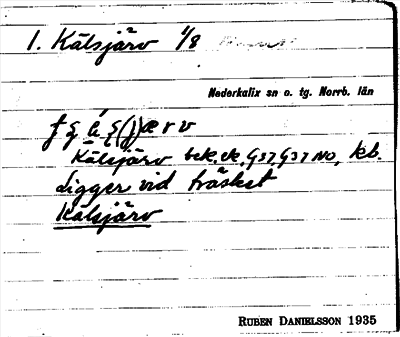 1. Kälsjärv 1/8
Nederkalix sn o. tg. Norrb. län
Kälsjärv bek, ek, G37, G37 NO, kb.
Ligger vid träsket
Kälsjärv
RUBEN DANIELSSON 1935